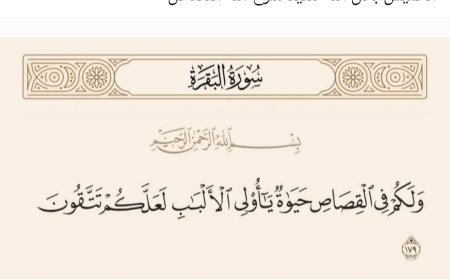 سُورَةُ البَقَرَةِ
بِسْمِ اللَّهِ الرَّحْمَٰنِ الرَّحِيمِ
وَلَكُمْ فِي الْقِصَاصِ حَيَوٰةٌ يَٰٓأُو۟لِي الْأَلْبَٰبِ لَعَلَّكُمْ تَتَّقُونَ
١٧٩